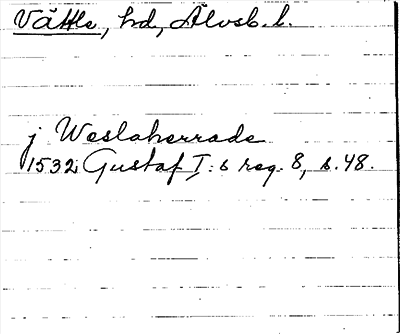 Vättle, hd, Älvsb. l.
j Weslaherrade
1532 Gustaf I:s reg. 8, s. 48.